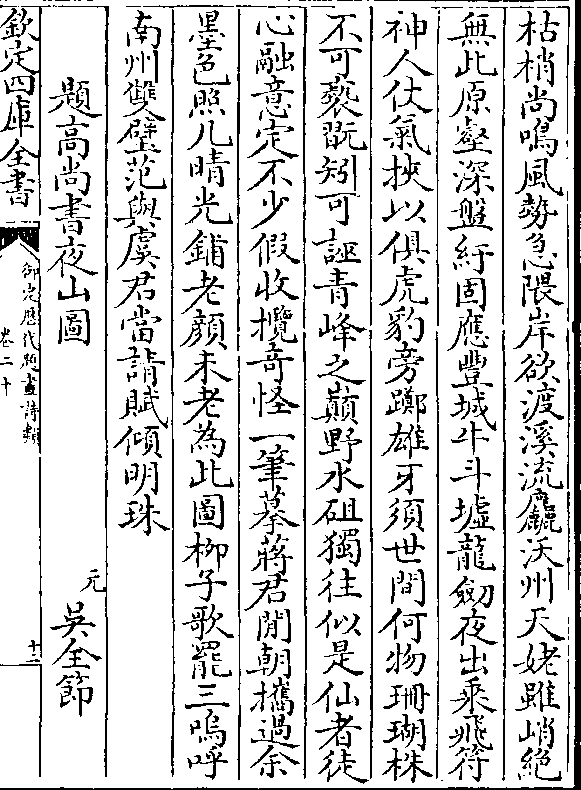 枯梢尚鳴風勢急隈岸欲渡溪流麤沃州天姥雖峭絶
無此原壑深盤紆固應豐城斗牛墟龍劒夜出乘飛符
神人仗氣挾以俱虎豹旁躑雄牙須世間何物珊瑚株
不可褻翫矧可誣青峰之巔野水砠獨往似是仙者徒
心融意定不少假收攬竒怪一筆摹蔣君閒朝攜過余
墨色照几晴光鋪老顔未老為此圖柳子歌罷三嗚呼
南州雙璧范與虞君當請賦傾明珠
題高尚書夜山圖
元 吳全節
欽定四庫全書
御定歷代題畫詩類
卷二十
十二